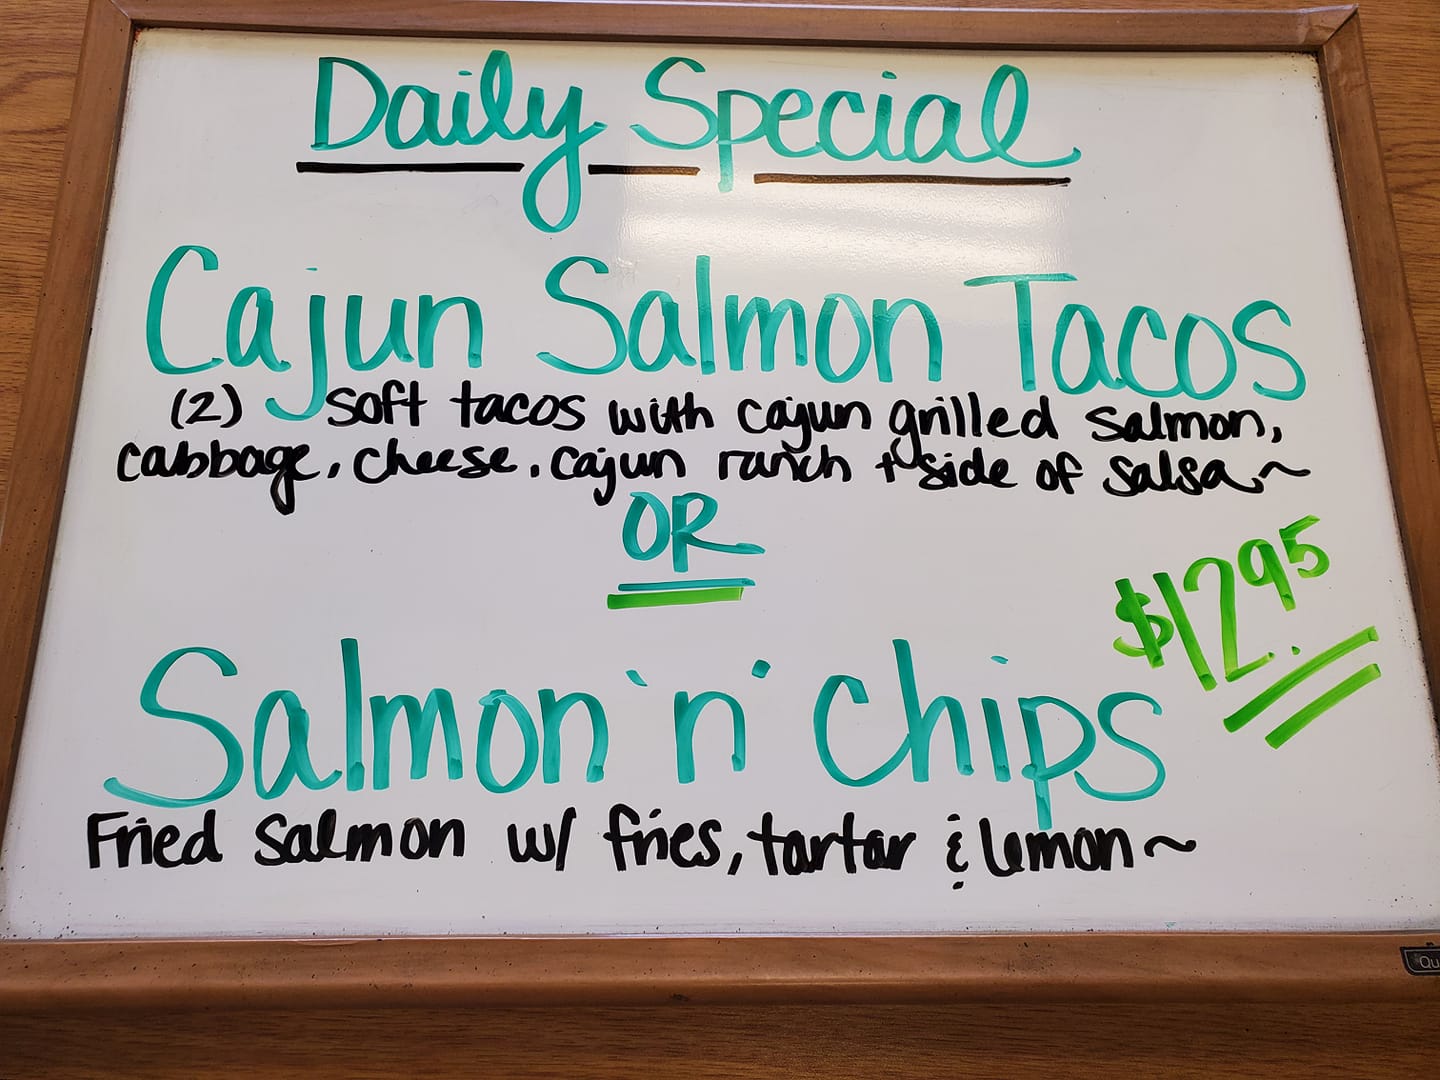 Daily Special
Cajun Salmon Tacos
(2) soft tacos with cajun grilled salmon,
cabbage, cheese, cajun ranch + side of salsa~
OR
$12.95
Salmon 'n' Chips
Fried salmon w/ fries, tartar & lemon~